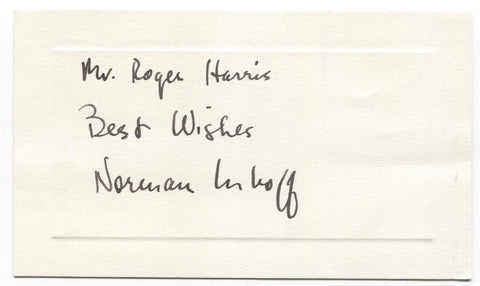 Mr. Roger Harris
Best Wishes
Norman